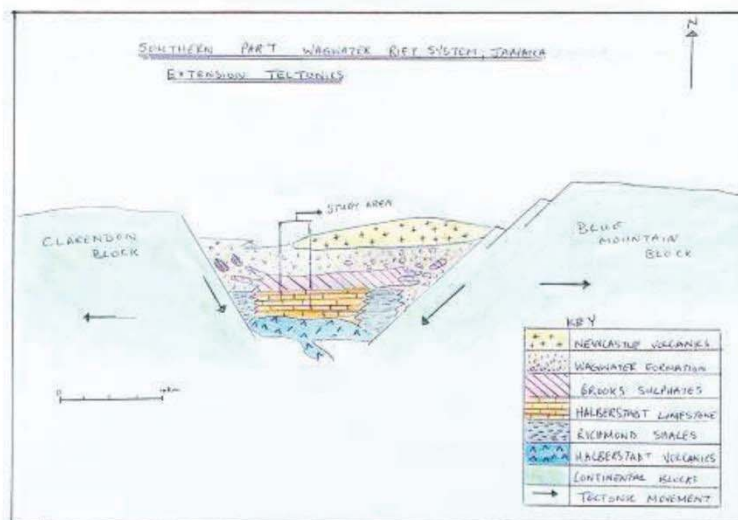 SOUTHERN PART WAGWATER RIFT SYSTEM, JAMAICA
EXTENSION TECTONICS
N
STUDY AREA
CLARENDON
BLOCK
BLUE
MOUNTAIN
BLOCK
0
KEY
NEWCASTLE VOLCANICS
WAGWATER FORMATION
BROOKS SULPHATES
HALBERSTADT LIMESTONE
RICHMOND SHALES
HALBERSTADT VOLCANICS
CONTINENTAL BLOCKS
TECTONIC MOVEMENT